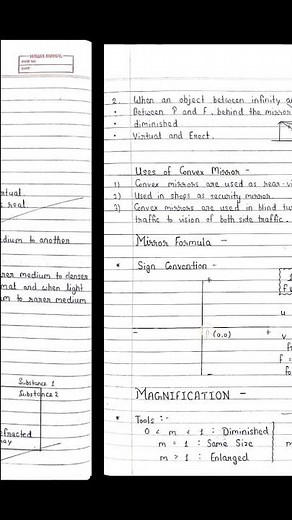 tual.
s real.
edium to another
rarer medium to denser
mal and when light
um to rarer medium
Substance 1
Substance 2
refracted
ray
2. When an object between infinity an
• Between P and F, behind the mirror
• diminished
• Virtual and Erect.
Uses of Convex Mirror -
1) Convex mirrors are used as rear-vi
2) Used in shops as security mirror.
3) Convex mirrors are used in blind tu
traffic to vision of both side traffic.
Mirror Formula -
* Sign Convention -
+
1
f
u
- +
P (0,0)
v
f =
-
fo
MAGNIFICATION -
* Tools :-
0 < m < 1 : Diminished
m = 1 : Same Size
m > 1 : Enlarged
m